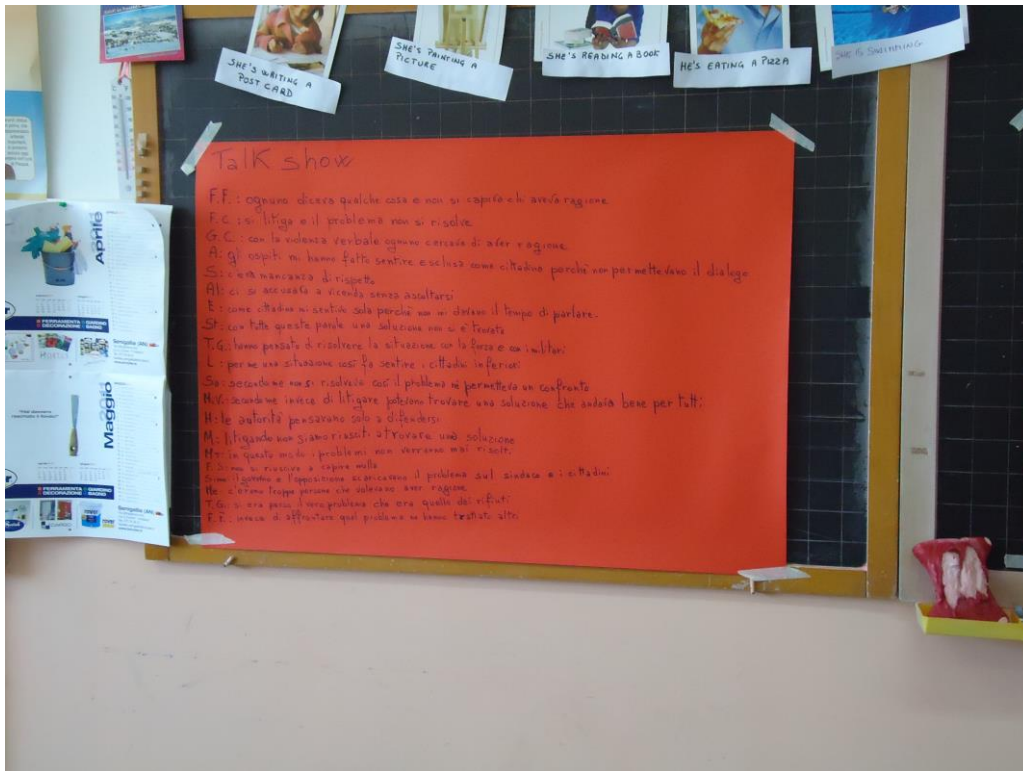 SHE'S WRITING A
POST CARD
SHE'S PAINTING A
PICTURE
SHE'S READING A BOOK
HE'S EATING A PIZZA
SHE IS SWIMMING
Talk show
F.F.: ognuno diceva qualche cosa e non si capiva chi aveva ragione
F.C.: si litiga e il problema non si risolve
G.C.: con la violenza verbale ognuno cercava di aver ragione
A: gli ospiti mi hanno fatto sentire esclusa come cittadina perchè non permettevano il dialogo
S: c'era mancanza di rispetto
Al: ci si accusava a vicenda senza ascoltarsi
E: come cittadina mi sentivo sola perchè non mi davano il tempo di parlare.
St: con tutte queste parole una soluzione non si è trovata
T.G.: hanno pensato di risolvere la situazione con la forza e con i militari
L: per me una situazione così fa sentire i cittadini inferiori
Sa: secondo me non si risolveva così il problema nè permetteva un confronto
N.V.: secondo me invece di litigare potevano trovare una soluzione che andava bene per tutti.
H: le autorità pensavano solo a difendersi
M: litigando non siamo riusciti a trovare una soluzione
MT: in questo modo i problemi non verranno mai risolti.
F.S: non si riusciva a capire nulla
il governo e l'opposizione scaricavano il problema sul sindaco e i cittadini
Me c'erano troppe persone che volevano aver ragione
T.G.: si era perso il vero problema che era quello dei rifiuti
F.F.: invece di affrontare quel problema ne hanno trattato altri
Aprile
FERRAMENTA GIARDINO
DECORAZIONE BAGNO
Senigallia (AN)
Maggio
FERRAMENTA GIARDINO
DECORAZIONE BAGNO
Senigallia (AN)